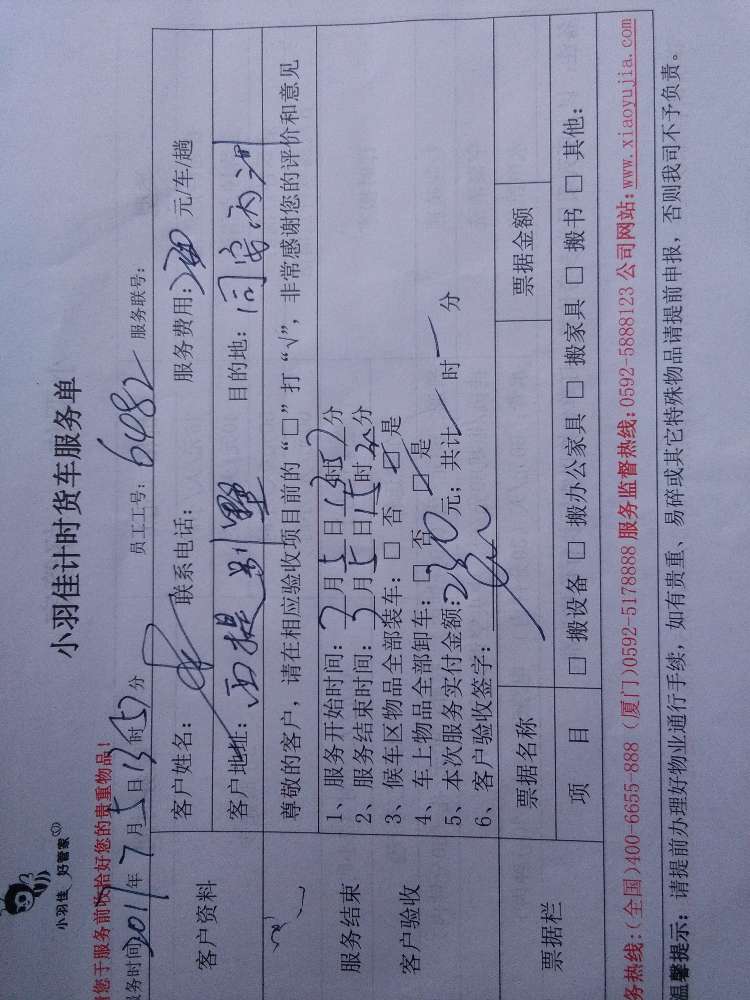 小羽佳 好管家
小羽佳计时货车服务单
请您于服务前收拾好您的贵重物品!
服务时间2011年7月5日13时5分 员工工号: 6482 服务联号:
客户资料
客户姓名: 联系电话: 服务费用: 元/车/趟
客户地址: 西堤别墅 目的地: 同安丙洲
尊敬的客户,请在相应验收项目前的“□”打“√”,非常感谢您的评价和意见
服务结束
客户验收
1、服务开始时间: 7月5日13时5分
2、服务结束时间: 7月5日15时分
3、候车区物品全部装车: □ 否 ☑ 是
4、车上物品全部卸车: □ 否 ☑ 是
5、本次服务实付金额: 230元; 共计 时 分
6、客户验收签字:
票据栏
票据名称 票据金额
项 目 □ 搬设备 □ 搬办公家具 □ 搬家具 □ 搬书 □ 其他:
务热线:(全国)400-6655-888 (厦门)0592-5178888 服务监督热线:0592-5888123 公司网站:www.xiaoyujia.com
温馨提示: 请提前办理好物业通行手续,如有贵重、易碎或其它特殊物品请提前申报,否则我司不予负责。